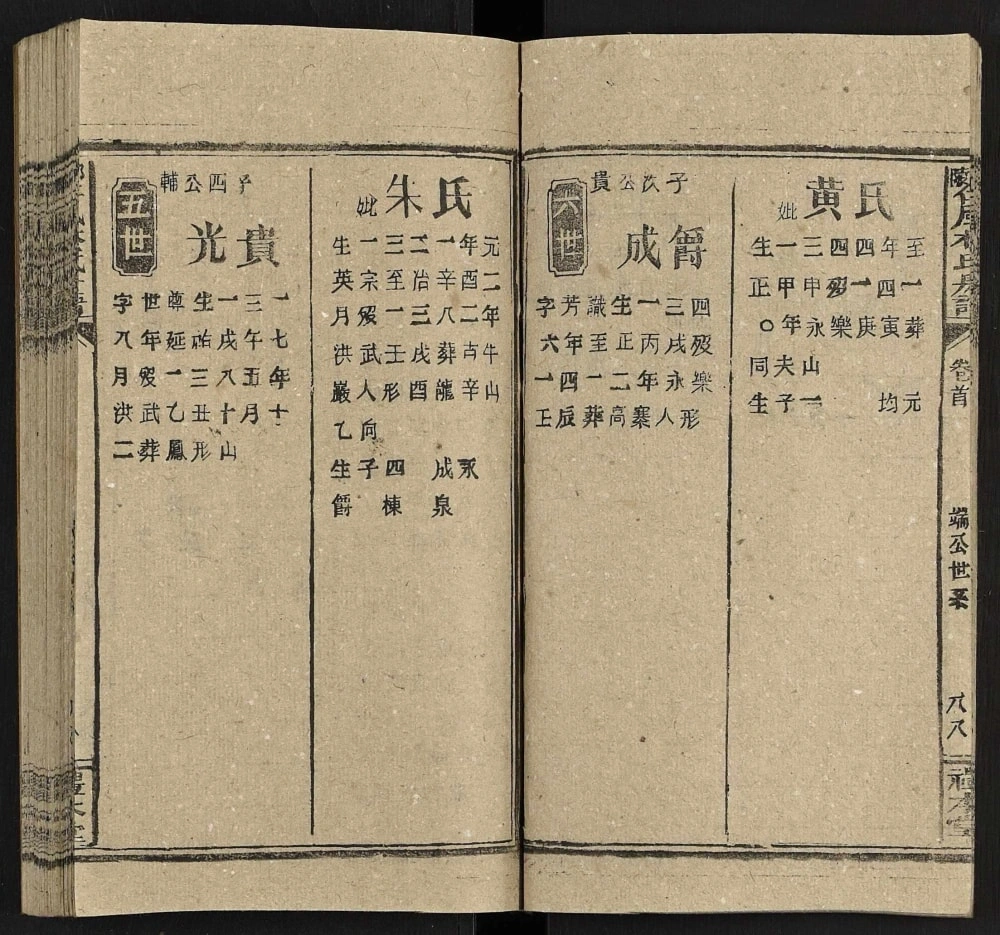 五世
輔公四子
光貴
字世尊生一三一
八年延祐戌午七
月歿一三八五年
洪武乙丑十月十
二葬鳳形山
妣朱氏
生一三二一年元
英宗至冶辛酉二
月歿一三八二年
洪武壬戌葬古牛
巖人形酉龍辛山
乙向
生子四 成永
爵 棟 泉
六世
貴公次子
成爵
字芳識生一三四
六年至正丙戌歿
一四一二年永樂
正辰葬高寨人形
妣黄氏
生一三四四年至
正甲申歿一四一
〇年永樂庚寅葬
同夫山
生子一 均元
卷首
端公世系
八八